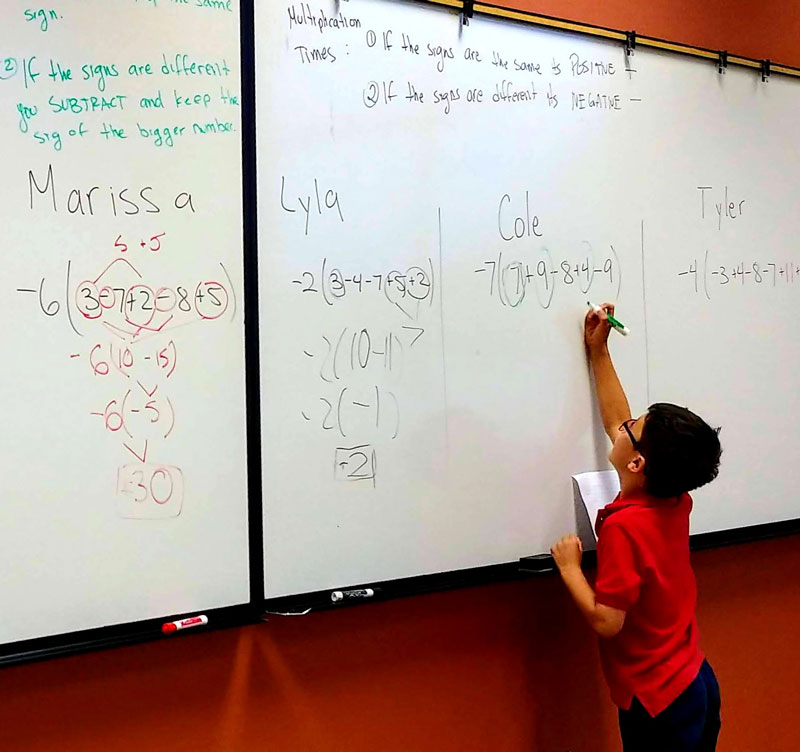 the same
sign.
② If the signs are different
you SUBTRACT and keep the
sig of the bigger number.
Multiplication
Times: ① If the signs are the same its POSITIVE +
② If the signs are different its NEGATIVE —
Marissa
5 +5
-6(3-7+2-8+5)
-6(10-15)
-6(-5)
+30
Lyla
-2(3-4-7+5+2)
-2(10-11)
-2(-1)
+2
Cole
-7(7+9-8+4-9)
Tyler
-4(-3+4-8-7+11+